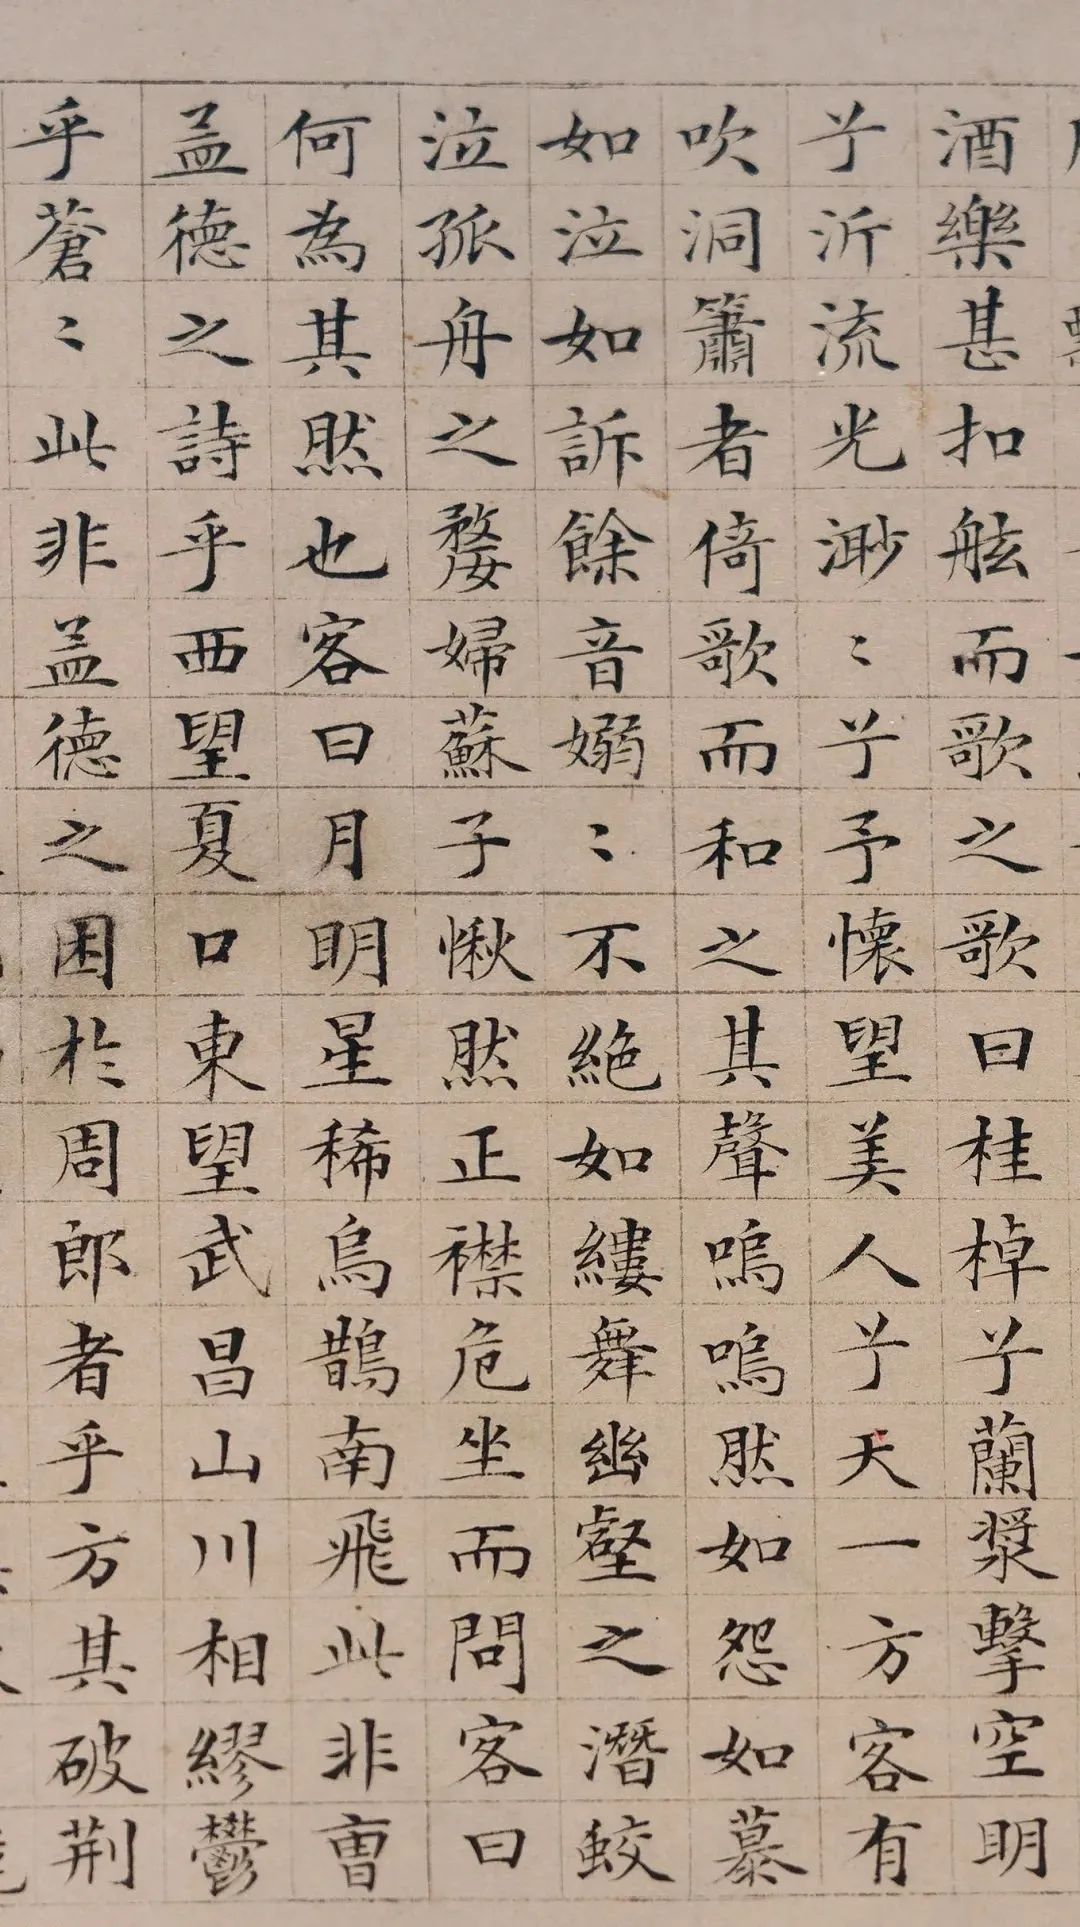 酒樂甚扣舷而歌之歌曰桂棹兮蘭槳擊空明
兮泝流光渺〻兮予懷望美人兮天一方客有
吹洞簫者倚歌而和之其聲嗚嗚然如怨如慕
如泣如訴餘音嫋〻不絕如縷舞幽壑之潛蛟
泣孤舟之嫠婦蘇子愀然正襟危坐而問客曰
何為其然也客曰月明星稀烏鵲南飛此非曹
孟德之詩乎西望夏口東望武昌山川相繆鬱
乎蒼〻此非孟德之困於周郎者乎方其破荆